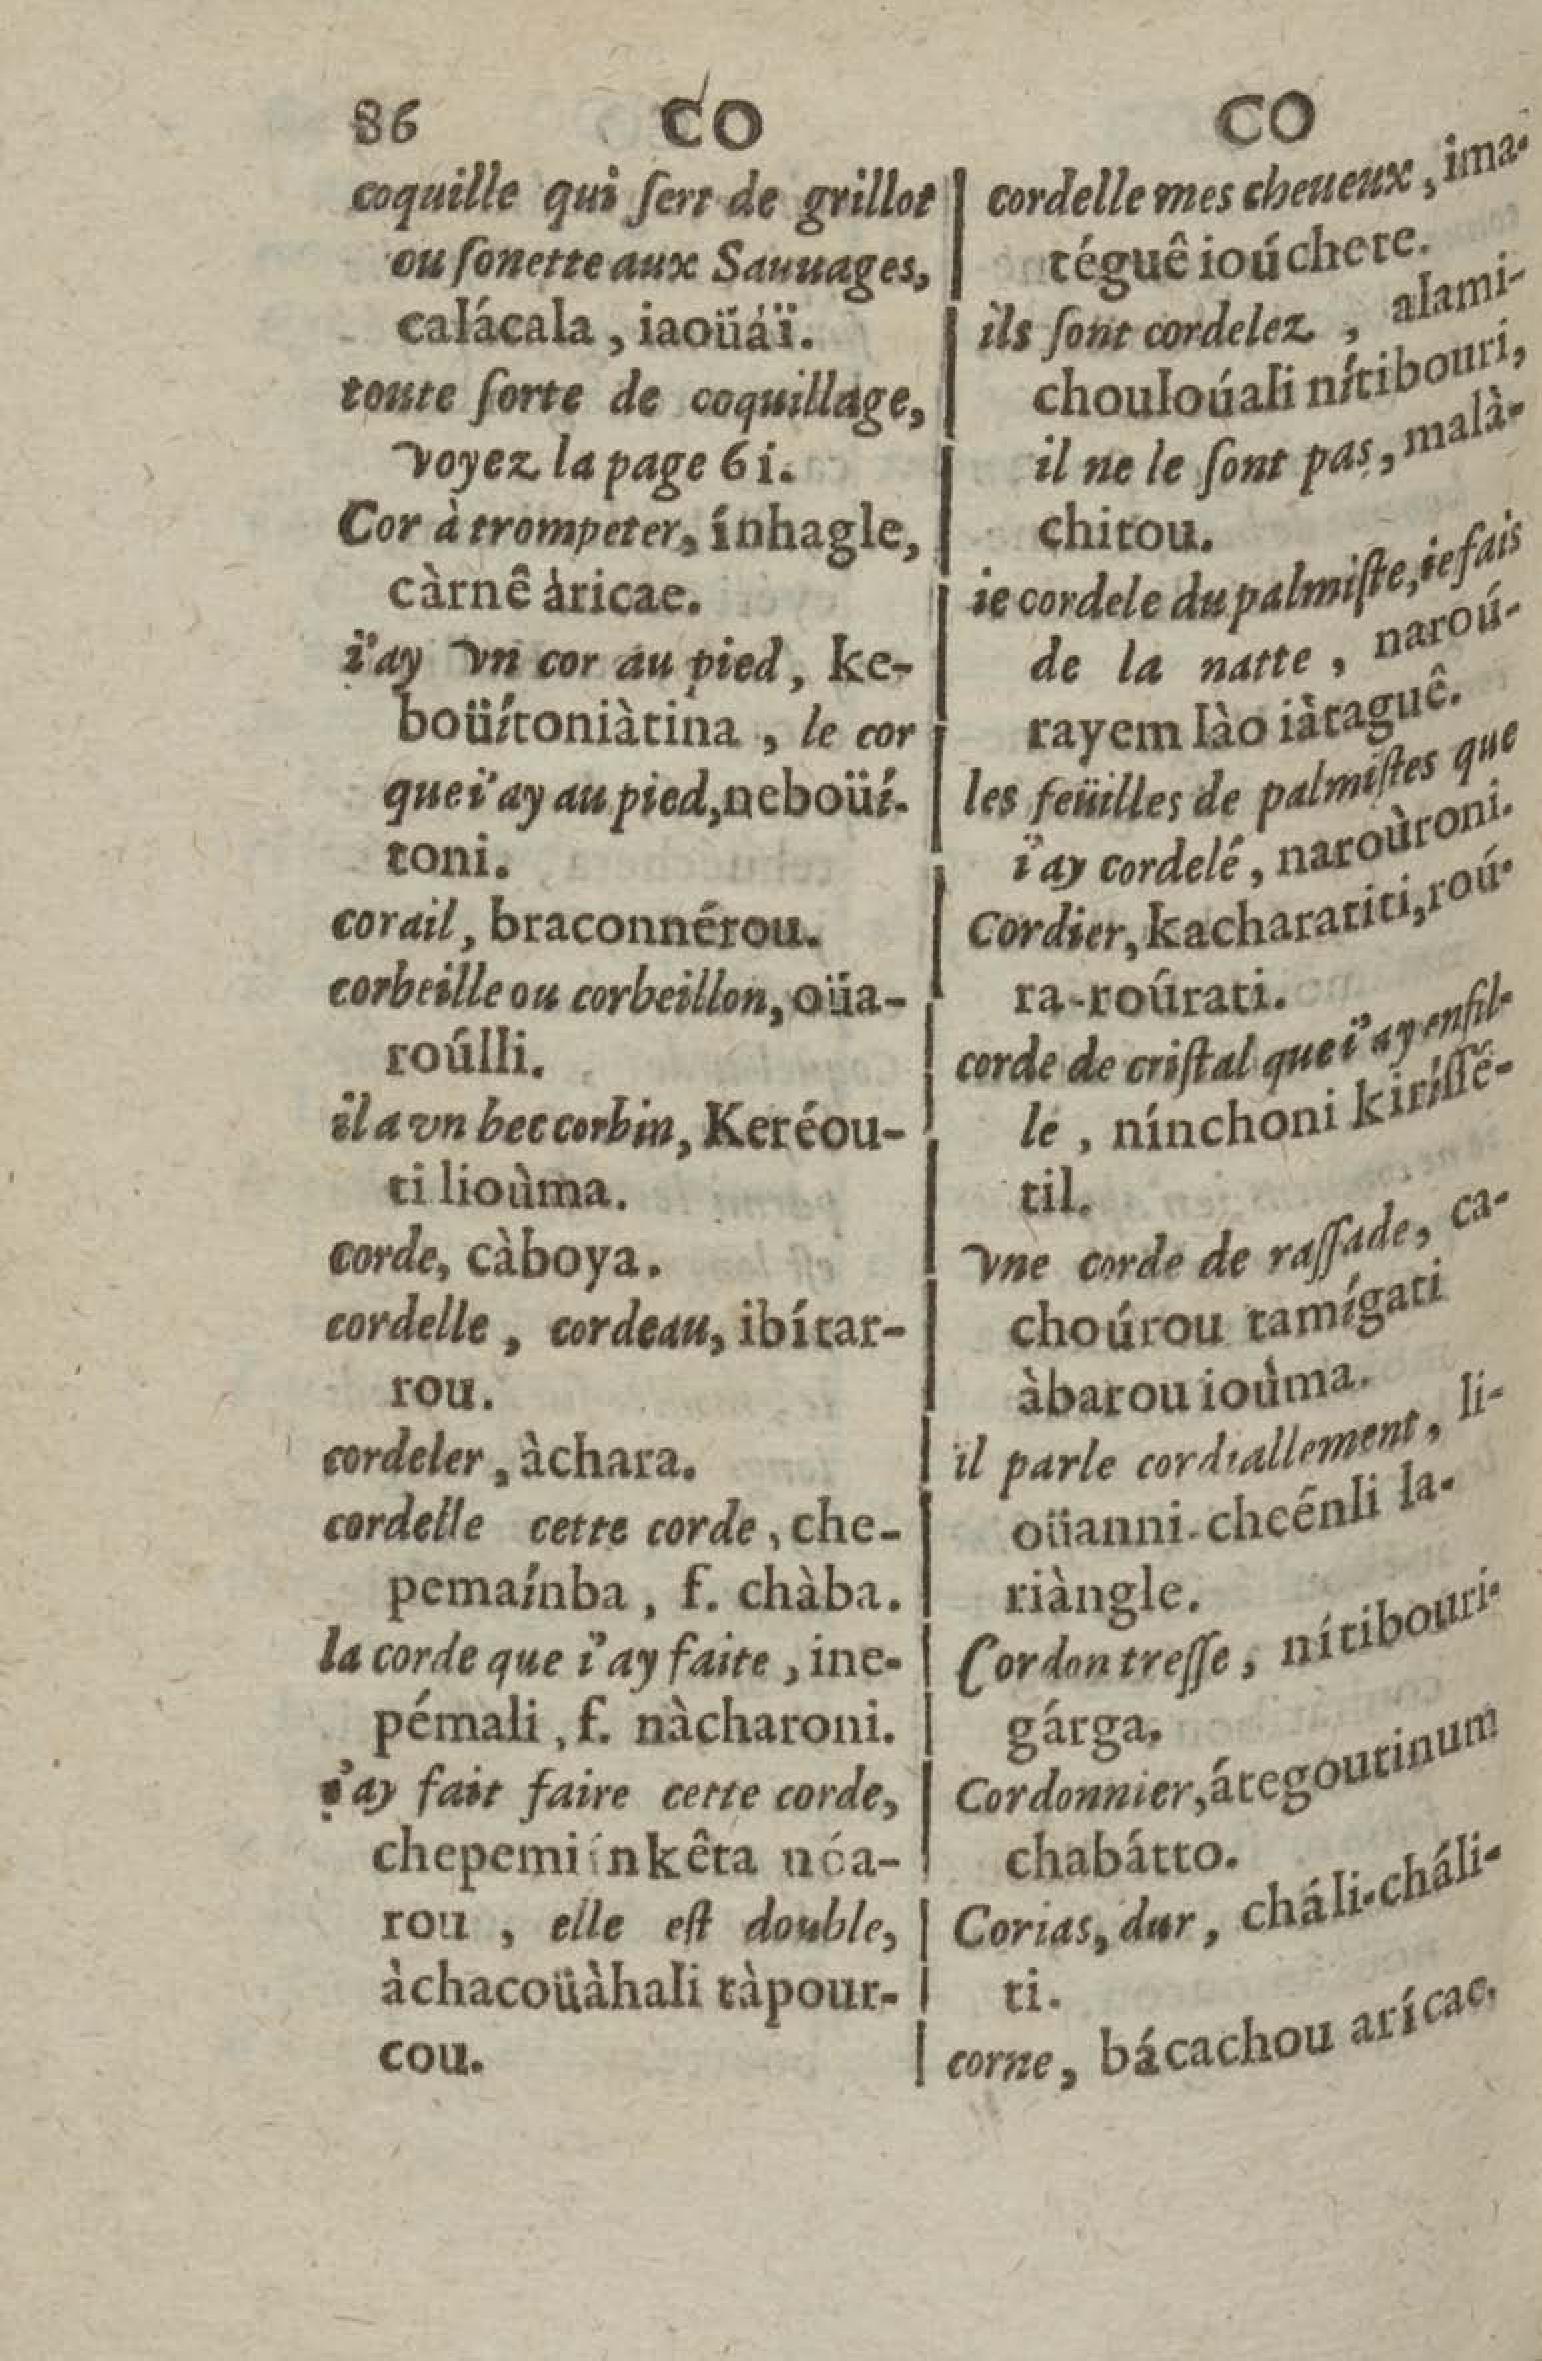 86 CO CO
coquille qui ſert de grillot
ou ſonette aux Sauuages,
calácala, iaoüáï.
toute ſorte de coquillage,
voyez la page 61.
Cor à trompeter, ínhagle,
càrnê àricae.
i'ay vn cor au pied, ke-
boüítoniàtina, le cor
que i'ay au pied, neboüí-
toni.
corail, braconnérou.
corbeille ou corbeillon, oüa-
roúlli.
il a vn bec corbin, Keréou-
ti lioùma.
corde, càboya.
cordelle, cordeau, ibítar-
rou.
cordeler, àchara.
cordelle cette corde, che-
pemaínba, f. chàba.
la corde que i'ay faite, ine-
pémali, f. nàcharoni.
i'ay fait faire cette corde,
chepemi ínkêta nóa-
rou, elle eſt double,
àchacoüàhali tàpour-
cou.
cordelle mes cheueux, ima-
téguê ioúchete.
ils ſont cordelez, alami-
chouloúali nítibouri,
il ne le ſont pas, malà-
chitou.
ie cordele du palmiſte, ie fais
de la natte, naroú-
rayem lào iàtaguê.
les feüilles de palmiſtes que
i'ay cordelé, naroùroni.
Cordier, kacharatiti, roú-
ra-roúrati.
corde de criſtal que i'ay enfil-
lé, nínchoni kiríſſé-
til.
vne corde de raſſade, ca-
choúrou tamígati
àbarou ioùma.
il parle cordiallement, li-
oüanni-cheénli la-
riàngle.
Cordon treſſe, nítibouri-
gárga.
Cordonnier, átegoutinum
chabátto.
Corias, dur, cháli-cháli-
ti.
corne, bácachou arícae.